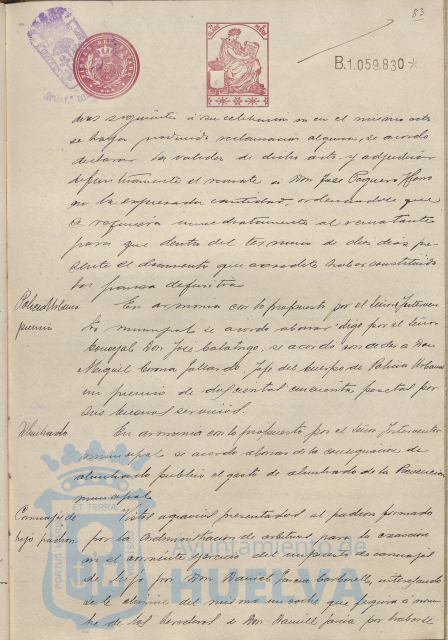 83
B.1.059.830*
dias siguientes á su celebracion ni en el mismo acto
se haya producido reclamacion alguna, se acordó
declarar la validez de dicho acto y adjudicar
definitivamente el remate á Don José
por la expresada cantidad, ordenandose que
se requiera inmediatamente al rematante
para que dentro del termino de diez dias pre-
sente el documento que acredite haber constituido
la fianza definitiva
Policia Urbana
premio
En armonia con lo propuesto por el Señor Interven
tor municipal se acordó abonar digo por el Señor
Concejal Don José se acordó conceder a Don
Miguel Corona Jefe del Cuerpo de Policia Urbana
un premio de doscientas cincuenta pesetas por
sus buenos servicios.
Alumbrado
En armonia con lo propuesto por el Señor Interventor
municipal se acordó abonar de la consignacion de
alumbrado publico el gasto de alumbrado de la
municipal
Carruajes de
lujo padron
Vistos agravios presentados al padron formado
por la Administracion de arbitrios para la exaccion
en el corriente ejercicio del impuesto de carruajes
de lujo por Don Manuel Garcia interesando
se le elimine del mismo un coche que figura á nom-
bre de los herederos de Don Garcia por haberle
Ayuntamiento de
HUELVA
PORTUS
ET TERRAE